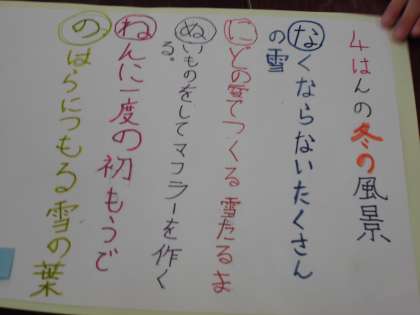 4はんの冬の風景
なくならないたくさん
の雪
にどの雪でつくる雪だるま
ぬいものをしてマフラーを作く
る。
ねんに一度の初もうで
のはらにつもる雪の葉